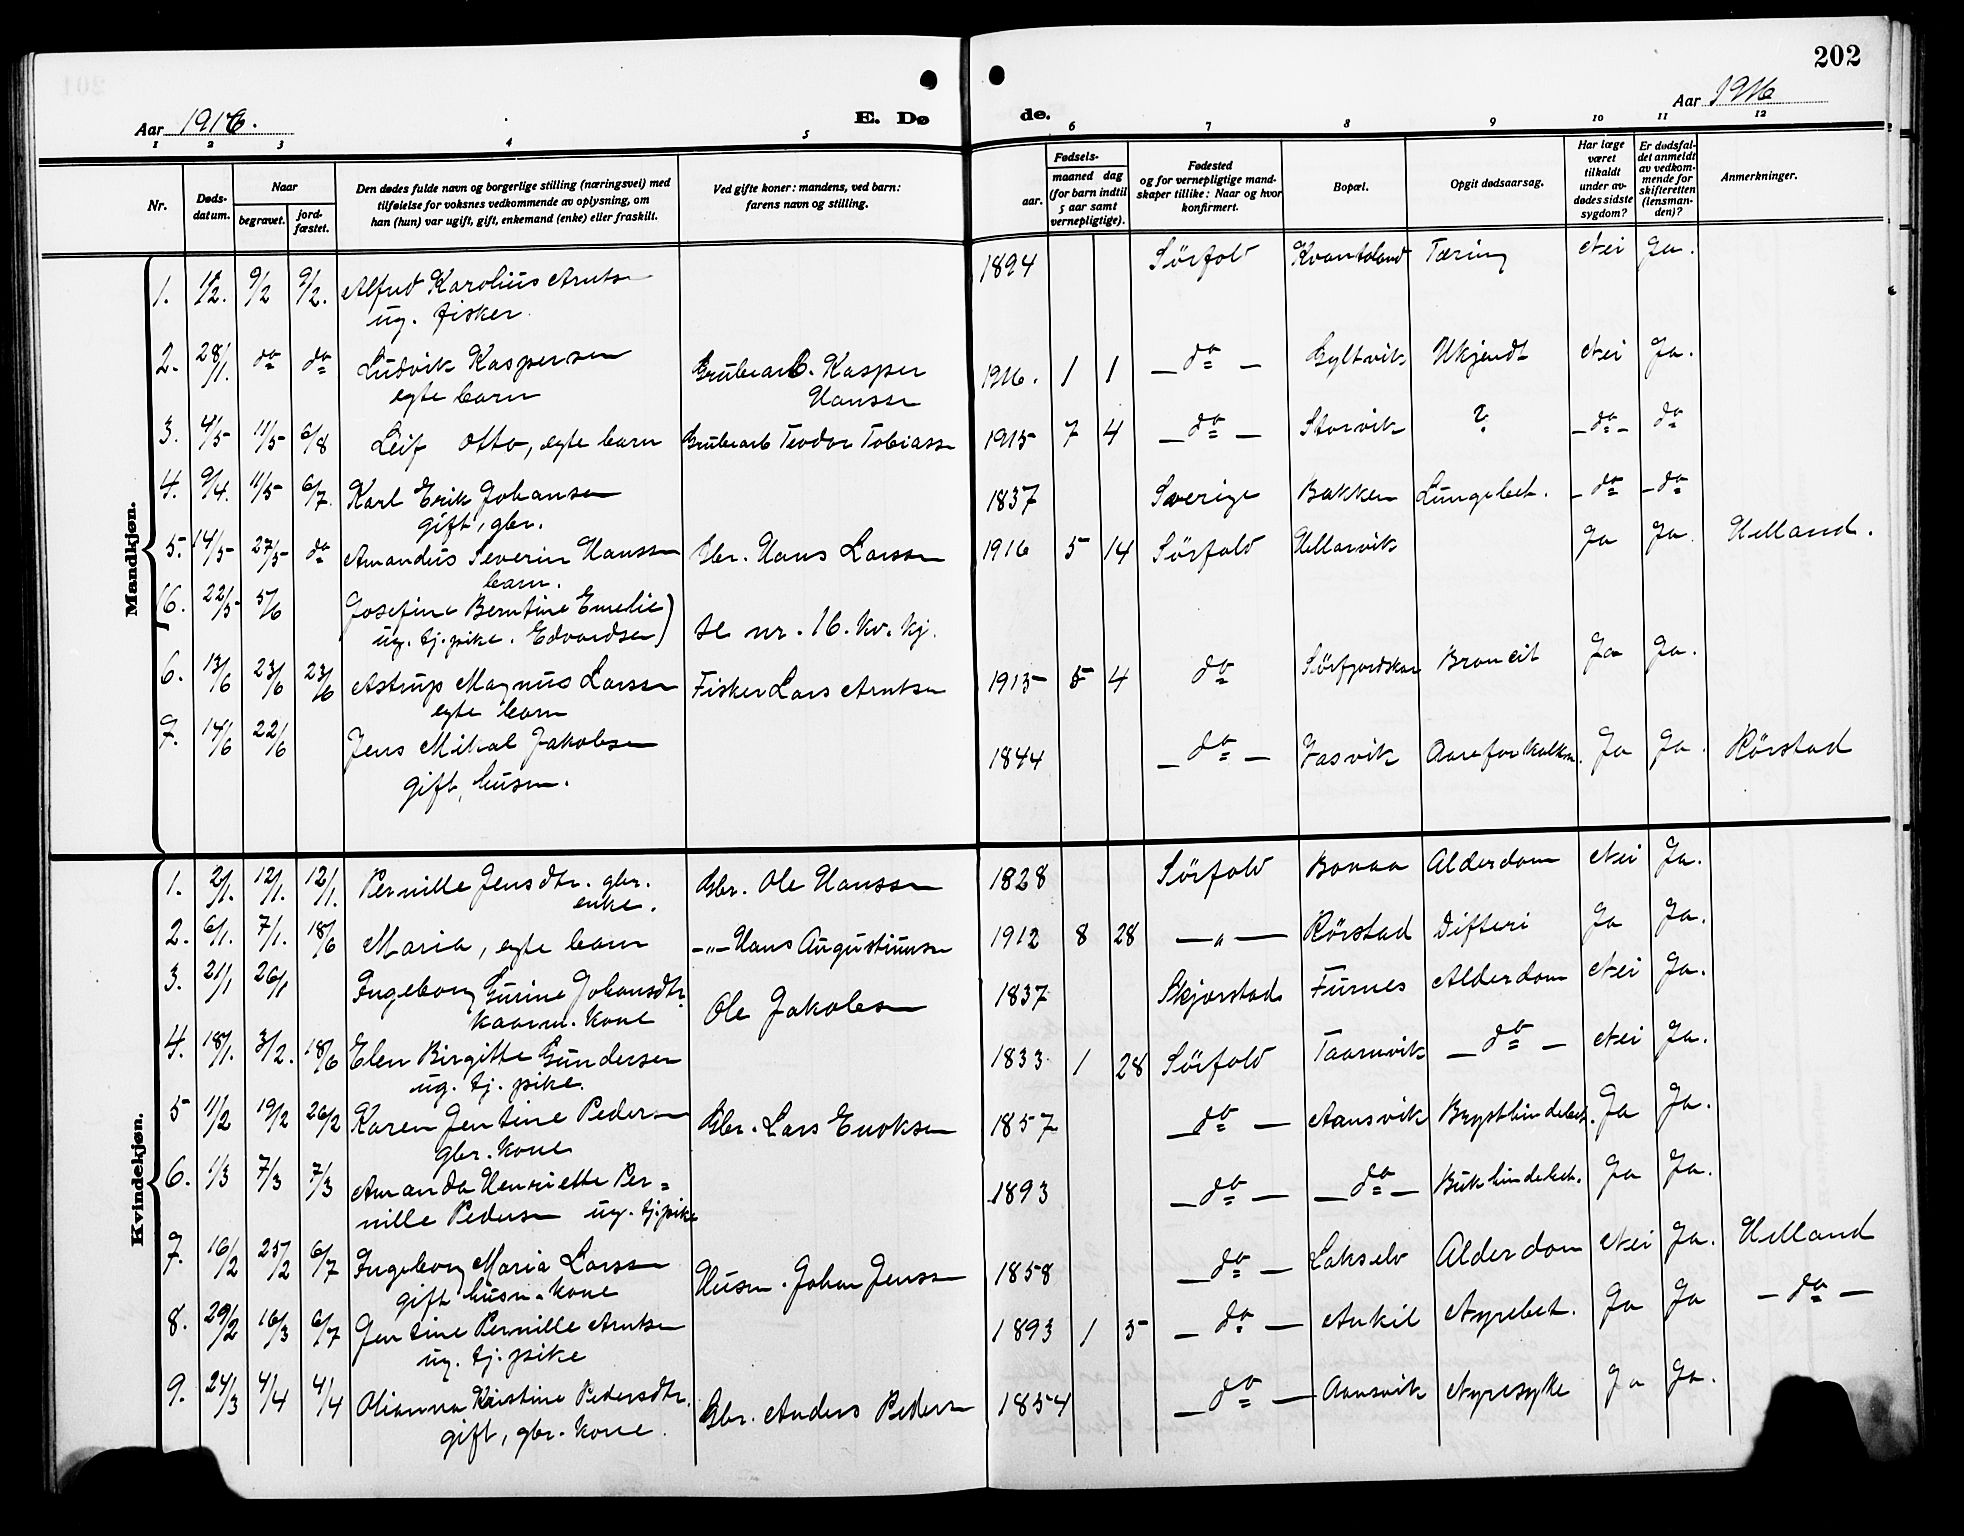 202
Aar 1916.
E. Dø
de.
Aar 1916
1 2 3 4 5 6 7 8 9 10 11 12
Nr.
Døds-
datum.
Naar
begravet.
jord-
fæstet.
Den dødes fulde navn og borgerlige stilling (næringsvei) med
tilføielse for voksnes vedkommende av oplysning, om
han (hun) var ugift, gift, enkemand (enke) eller fraskilt.
Ved gifte koner: mandens, ved barn:
farens navn og stilling.
Fødsels-
aar.
maaned dag
(for barn indtil
5 aar samt
vernepligtige).
Fødested
og for vernepligtige mand-
skaper tillike: Naar og hvor
konfirmert.
Bopæl.
Opgit dødsaarsag.
Har læge
været
tilkaldt
under av-
dødes sidste
sygdom?
Er dødsfal-
det anmeldt
av vedkom-
mende for
skifteretten
(lensman-
den)?
Anmerkninger.
Mandkjøn.
1. 1/2. 9/2 9/2. Alfred Karolius Arntsen 1894 Sörfold Kvantoland Tæring Nei Ja.
ug. fisker.
2. 28/1. do do Ludvik Kaspersen Grubearb. Kasper 1916. 1 1 — do — Gyltvik Ukjendt Nei Ja.
egte barn Hanssen
3. 4/5 11/5 6/8 Leif Otto, egte barn Grubearb Teodor Tobiassen 1915 7 4 — do — Storvik ? — do — do
4. 9/4. 11/5 6/7. Karl Erik Johansen 1837 Sverige Bakken Lungebet. — do — do
gift, gbr.
5. 14/5 27/5 do Amandus Severin Hanssen Gbr. Hans Larssen 1916 5 14 Sörfold Hellarvik Ja Ja Helland.
barn.
16. 22/5 5/6 Josefine Berntine Emelie)
ug. tj. pike. Edvardsen) se nr. 16. kv. kj.
6. 13/6 23/6 23/6 Astrup Magnus Larssen Fisker Lars Arntsen 1915 5 4 do Sörfjordskar Broncit Ja Ja.
egte barn
7. 14/6 22/6 Jens Mikal Jakobsen 1844 — do — Vasvik Aareforkalkn. Ja Ja. Rörstad
gift, husm.
Kvindekjøn.
1. 2/1. 12/1. 12/1. Pernille Jensdtr. gbr. Gbr. Ole Hanssen 1828 Sörfold Bonaa Alderdom Nei Ja.
enke.
2. 6/1. 7/1. 18/6 Maria, egte barn —"— Hans Augustinussen 1912 8 28 — " — Rörstad Difteri Ja Ja.
3. 21/1 26/1 Ingeborg Gurine Johansdtr. Ole Jakobsen 1837 Skjerstad Furnes Alderdom Nei Ja.
kaarm. kone
4. 18/1. 3/2. 18/6 Elen Birgitte Gundersen 1833 1 28 Sörfold Taarnvik — do — Nei Ja.
ug. tj. pike.
5 11/2 19/2 26/2 Karen Jentine Pedersen Gbr. Lars Enoksen 1857 — do — Aansvik Brysthindebet. Ja Ja.
gbr. kone
6. 1/3 7/3 7/3 Amanda Henriette Per= 1893 — do — — do — Bukhindebet. Ja Ja.
nille Pedersen ug. tj. pike
7. 16/2 25/2 6/7 Ingeborg Maria Larssen Husm. Johan Jenssen 1858 — do — Lakselv Alderdom Nei Ja. Helland
gift husm. kone
8. 29/2 16/3 6/7 Jentine Pernille Arntsen 1893 1 5 — do — Ankil Nyrebet. Ja Ja — do —
ug. tj. pike
9. 24/3 4/4 4/4 Olianna Kristine Pedersdtr. Gbr. Anders Pedersen 1854 — do — Aansvik Nyresyke Ja Ja.
gift, gbr. kone.